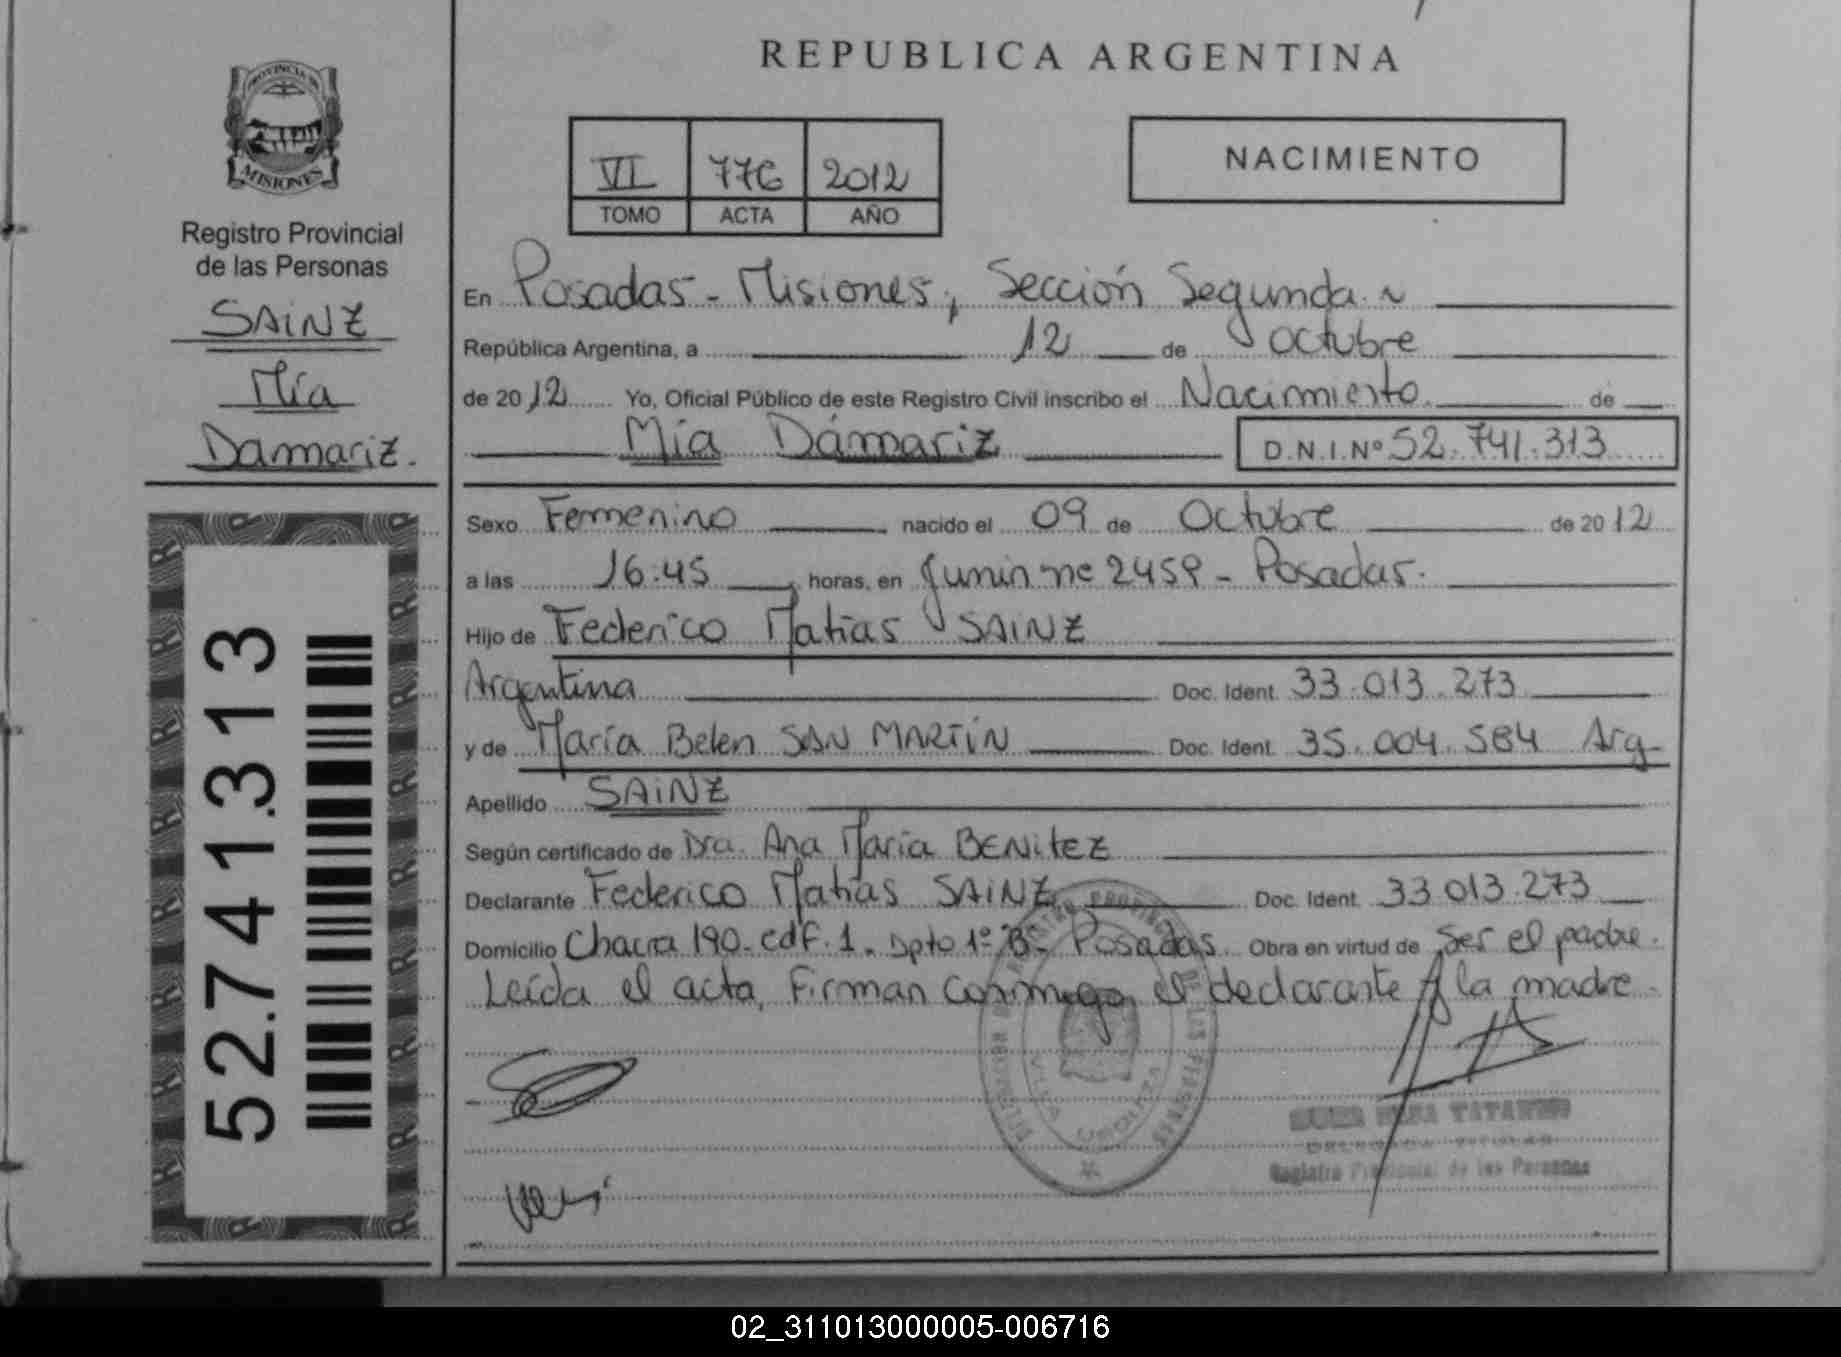 REPUBLICA ARGENTINA
PROVINCIA DE
MISIONES
Registro Provincial
de las Personas
SAINZ
Mía
Damariz.
52.741.313
VI 776 2012
TOMO ACTA AÑO
NACIMIENTO
En Posadas - Misiones, Sección Segunda. ~
República Argentina, a 12 de octubre
de 2012 Yo, Oficial Público de este Registro Civil inscribo el Nacimiento. de
Mía Dámariz D.N.I.Nº 52.741.313
Sexo Femenino nacido el 09 de Octubre de 2012
a las 16:45, horas, en Junin nº 2459 - Posadas.
Hijo de Federico Matias SAINZ
Argentina Doc. Ident. 33.013.273
y de María Belen SAN MARTÍN Doc. Ident. 35.004.584 Arg
Apellido SAINZ
Según certificado de Dra. Ana María BENITEZ
Declarante Federico Matías SAINZ Doc. Ident. 33.013.273
Domicilio Chacra 190. edf. 1. Dpto 1º "B" Posadas. Obra en virtud de Ser el padre.
Leída el acta, Firman conmigo, el declarante y la madre.
VILLA URQUIZA
Registro Provincial de las Personas
02_311013000005-006716